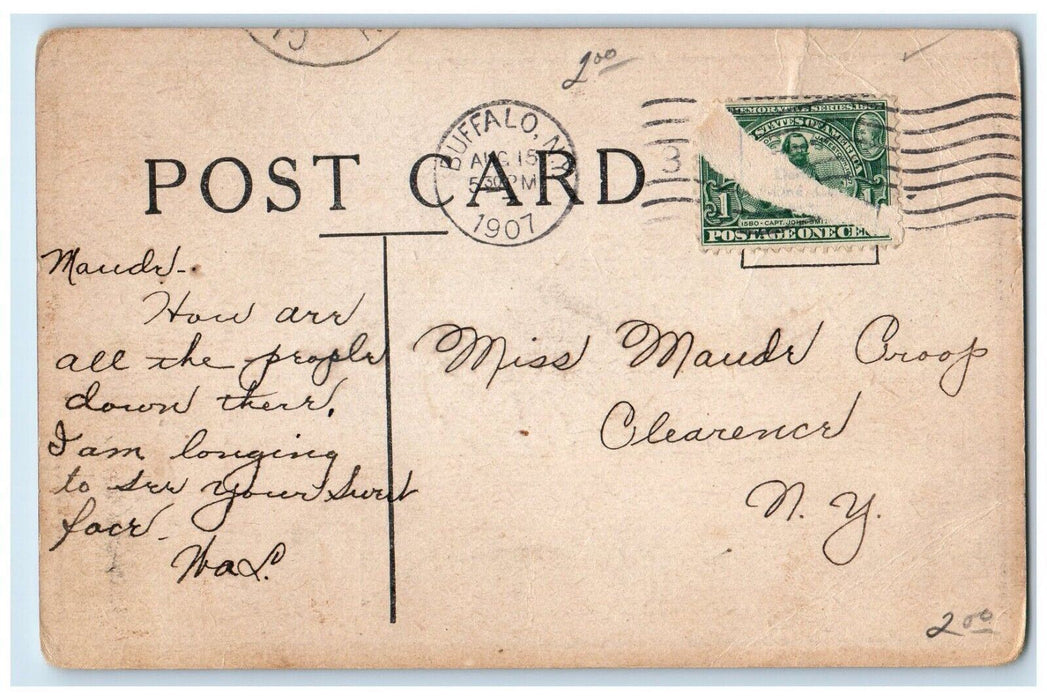 2.00
POST CARD
BUFFALO, N.Y.
AUG 15
5 30 PM
1907
3
MEMORATIVE SERIES 190
STATES OF AMERICA
1 1
1580 - CAPT. JOHN SMITH
POSTAGE ONE CEN
Maude-
How are
all the people
down there.
I am longing
to see your sweet
face-
Miss Maude Croop
Clearence
N. Y.
2.00